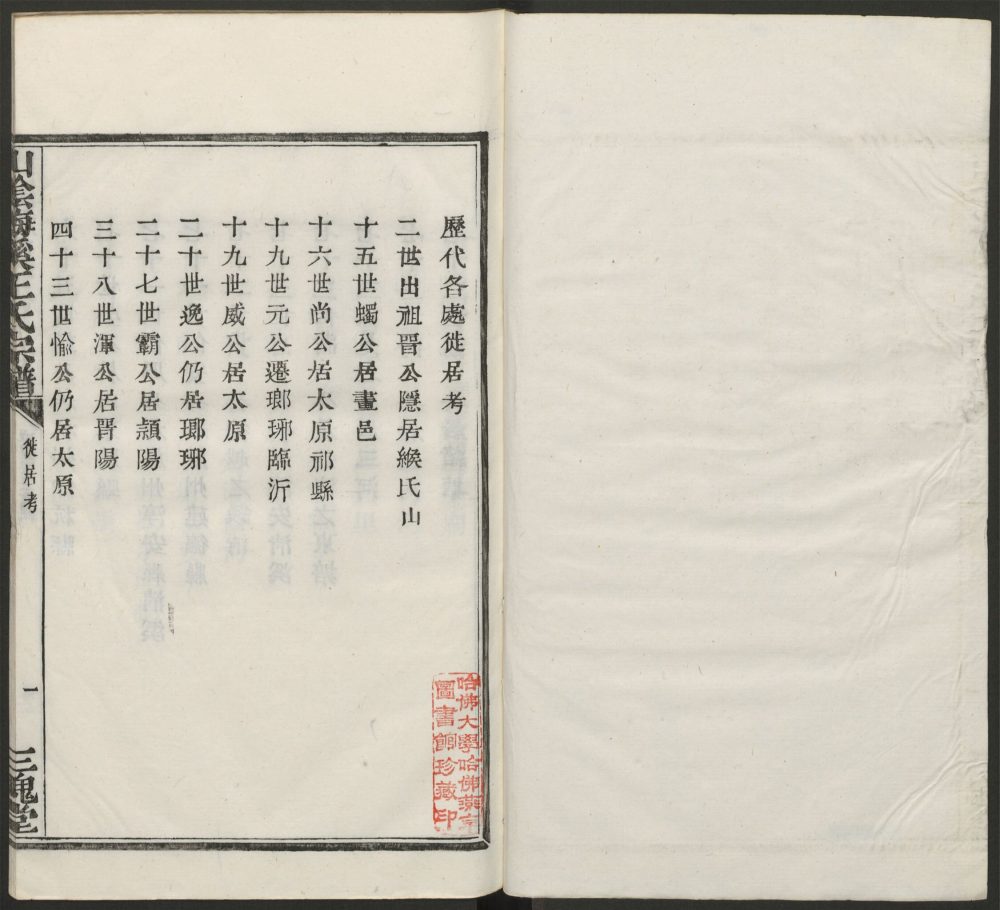 歷代各處徙居考
二世出祖晋公隱居緱氏山
十五世蠋公居畫邑
十六世尚公居太原祁縣
十九世元公遷瑯琊臨沂
十九世威公居太原
二十世逸公仍居瑯琊
二十七世霸公居頴陽
三十八世渾公居晋陽
四十三世愉公仍居太原
山陰梅溪王氏宗譜
徙居考
一
三槐堂
哈佛大學哈佛燕京
圖書館珍藏印